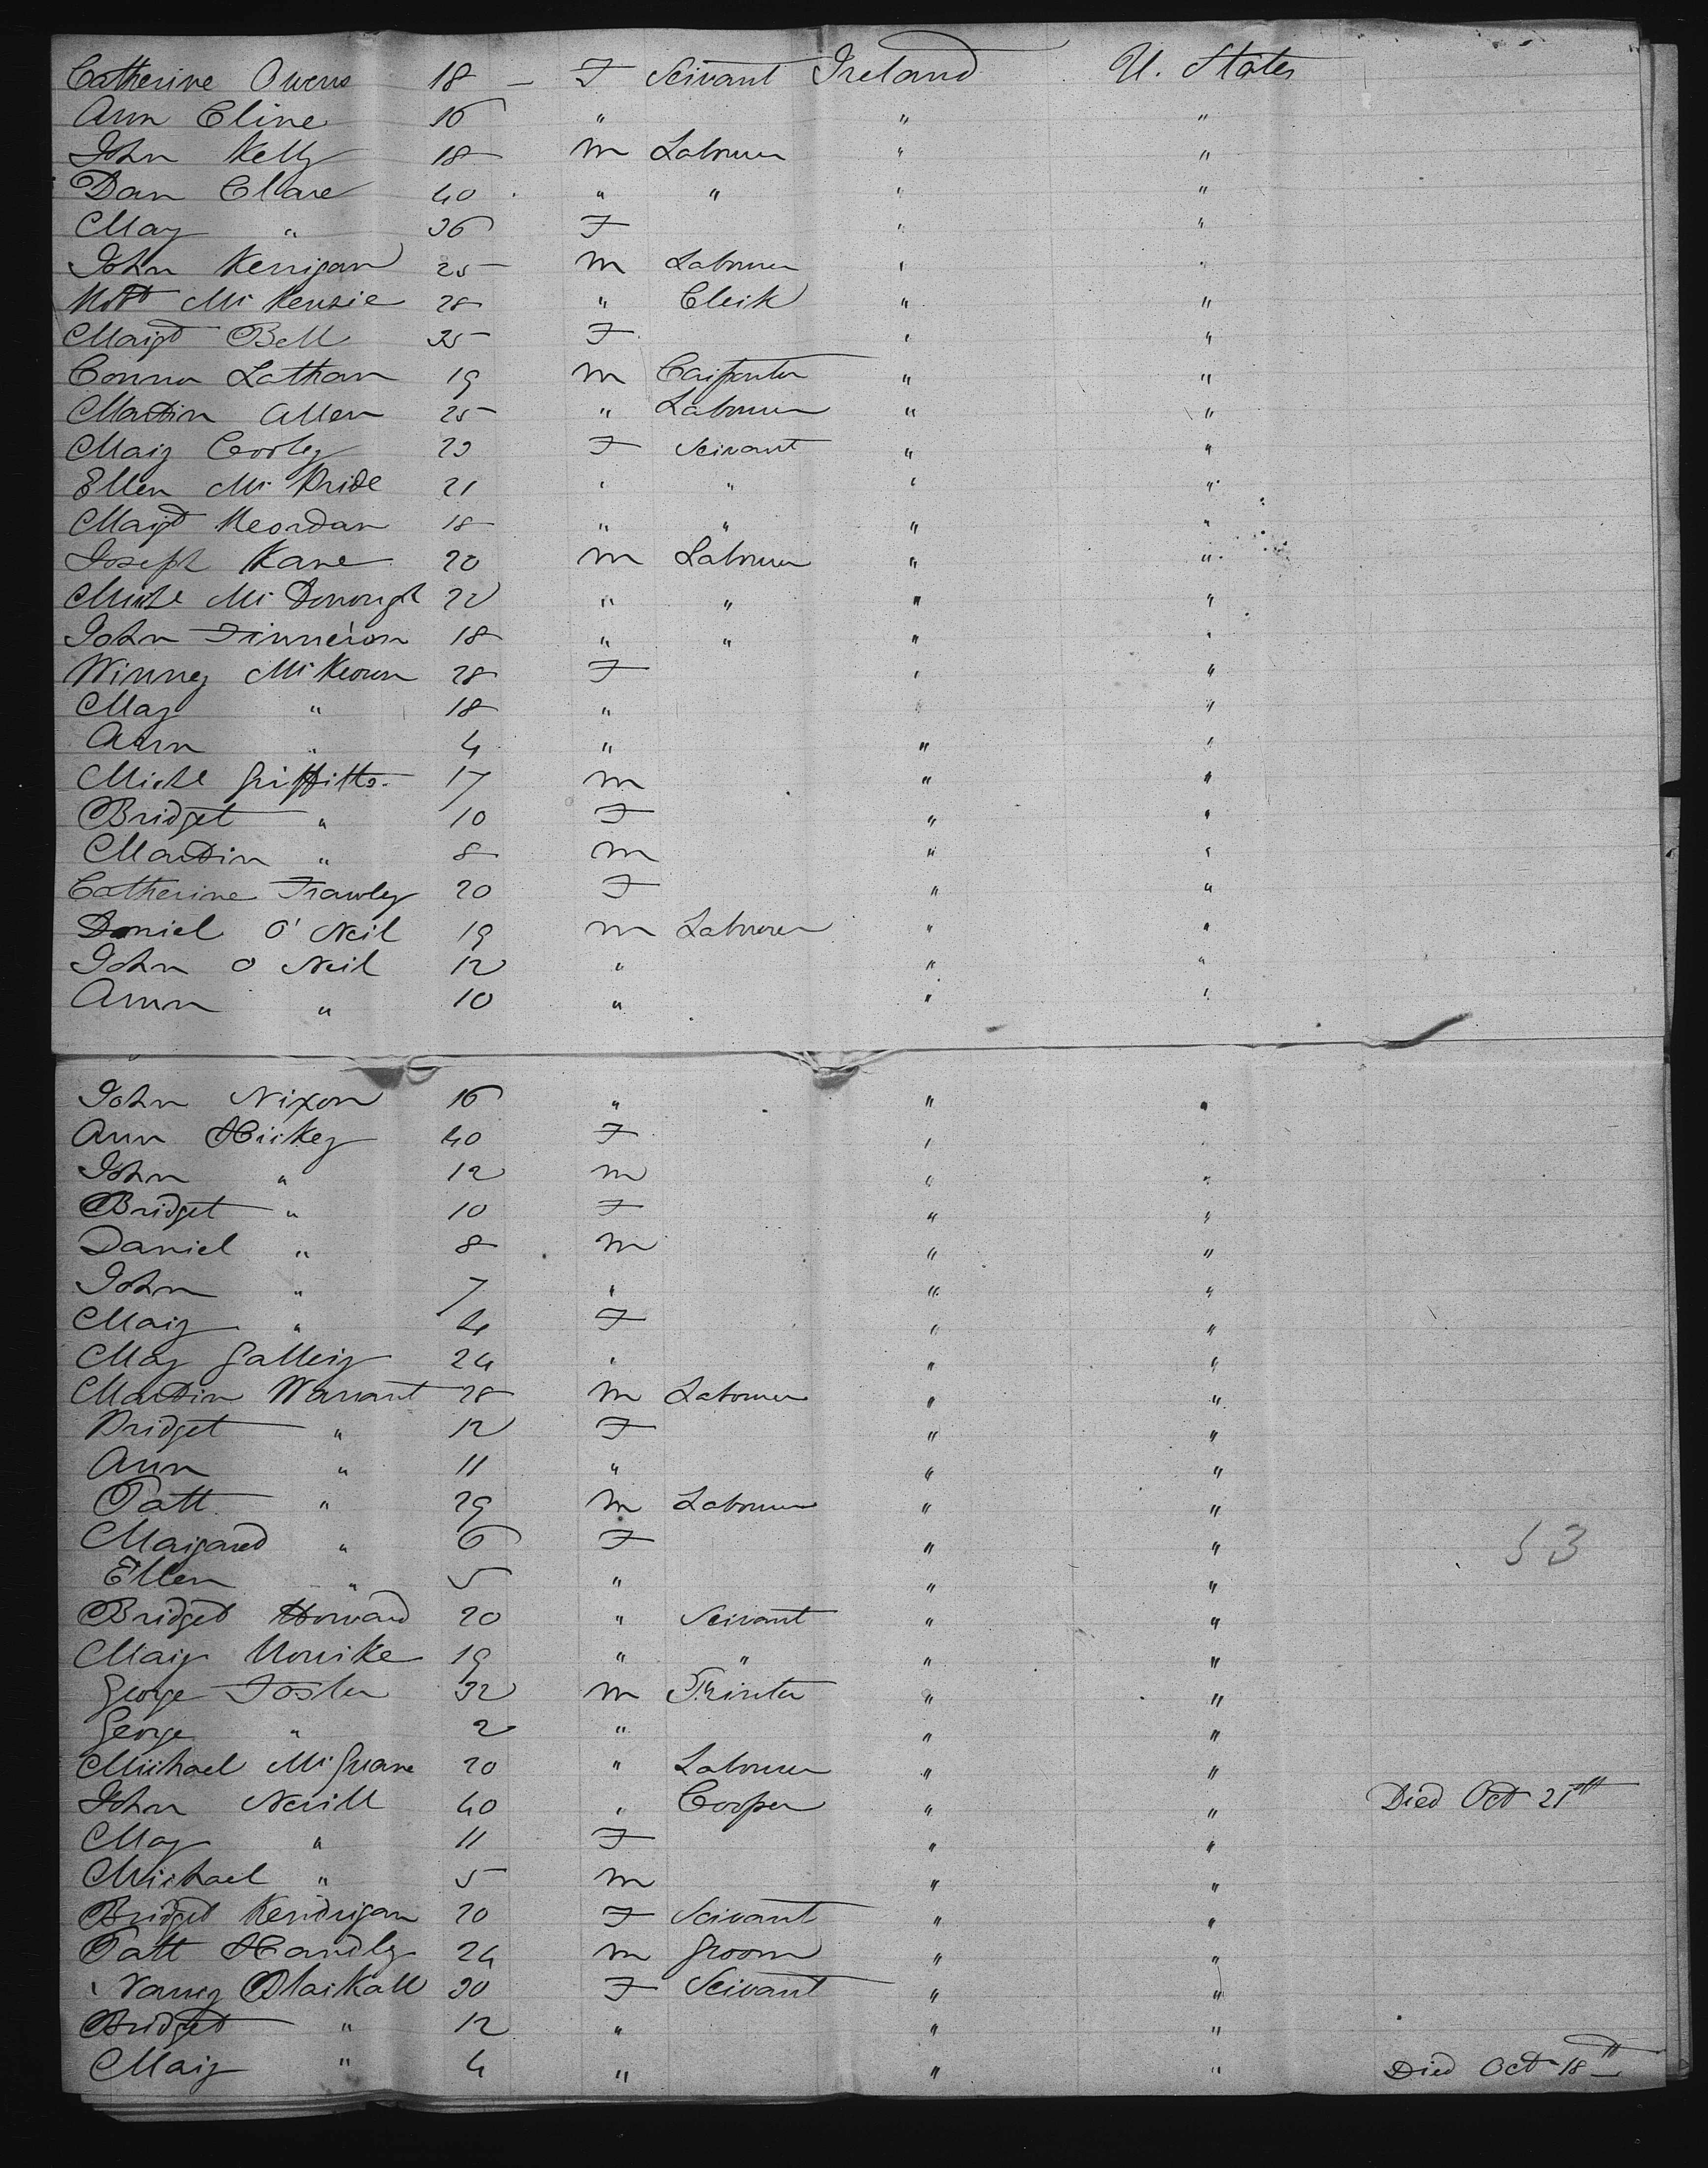 Catherine Owens 18 — F Servant Ireland U. States
Ann Cline 16 " " "
John Kelly 18 m Labourer " "
Dan Clare 40 " " " "
Mary " 36 F " "
John Kerrigan 25 m Labourer " "
McKenzie 28 " Clerk " "
Margt Bell 35 F " "
Connor Lathan 19 m Carpenter " "
Martin Allen 25 " Labourer " "
Mary Cooley 23 F Servant " "
Ellen McBride 21 " " " "
Margt Reordan 18 " " " "
Joseph Kane 20 m Labourer " "
Michl McDonough 22 " " " "
John Finneron 18 " " " "
Winney McKeown 28 F " "
Mary " 18 " " "
Ann " 4 " " "
Michl Griffiths 17 m " "
Bridget " 10 F " "
Martin " 8 m " "
Catherine Frawley 20 F " "
Daniel O'Neil 19 m Labourer " "
John O Neil 12 " " "
Ann " 10 " " "
John Nixon 16 " " "
Ann Hickey 40 F " "
John " 12 m " "
Bridget " 10 F " "
Daniel " 8 m " "
John " 7 " " "
Mary " 4 F " "
Mary 24 " " "
Martin Warrant 28 m Labourer " "
Bridget " 12 F " "
Ann " 11 " " "
Patt " 29 m Labourer " "
Margaret " 6 F " " 53
Ellen " 5 " " "
Bridget Howard 20 " Servant " "
Mary 19 " " " "
George Foster 32 m Printer " "
George " 2 " " "
Michael McGuane 20 " Labourer " "
John Nevill 40 " Cooper " " Died Oct 21st
Mary " 11 F " "
Michael " 5 m " "
Bridget Kendrigan 20 F Servant " "
Patt Handly 24 m Groom " "
Nancy Blaikall 30 F Servant " "
Bridget " 12 " " "
Mary " 4 " " " Died Oct 18th